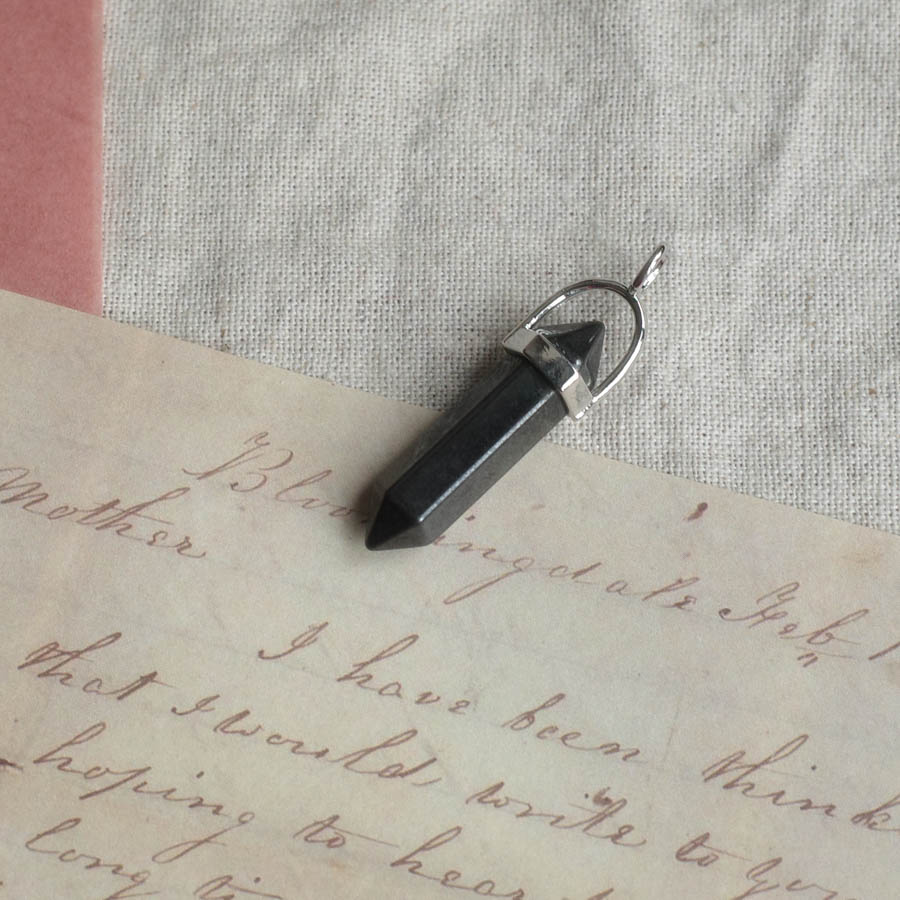 Bloomingdale Feb
Mother
I have been think
that I would write to you
hoping to hear
long